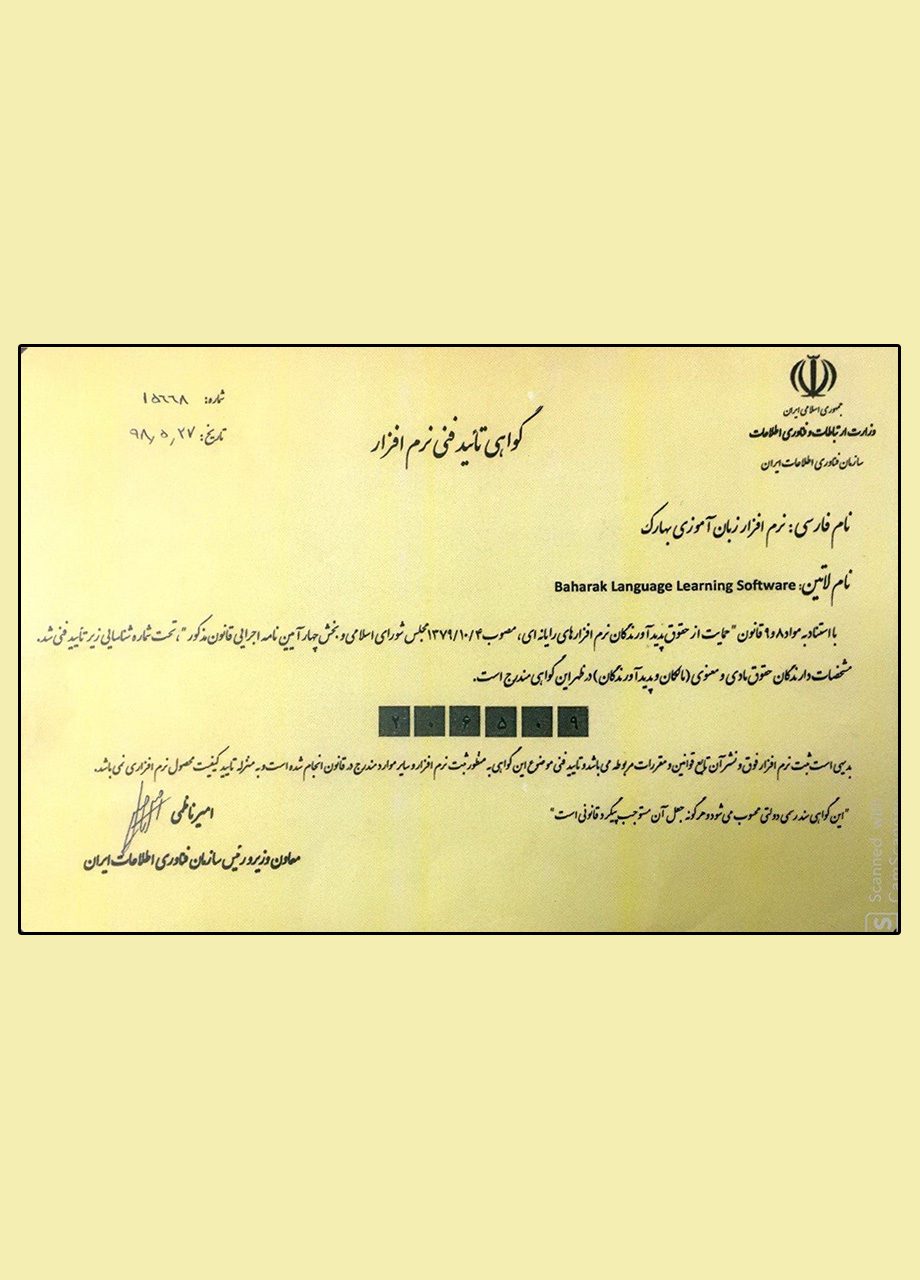 جمهوری اسلامی ایران
وزارت ارتباطات و فناوری اطلاعات
سازمان فناوری اطلاعات ایران
شماره: ۱۵۶۶۸
تاریخ: ۹۸٫۵٫۲۷
گواهی تأئید فنی نرم افزار
نام فارسی: نرم افزار زبان آموزی بهارک
نام لاتین: Baharak Language Learning Software
با استناد به مواد ۸ و ۹ قانون "حمایت از حقوق پدیدآورندگان نرم افزارهای رایانه ای، مصوب ۱۳۷۹/۱۰/۴ مجلس شورای اسلامی و بخش چهار آیین نامه اجرایی قانون مذکور"، تحت شماره شناسایی زیر تأیید فنی شد.
مشخصات دارندگان حقوق مادی و معنوی (مالکان و پدیدآورندگان) در ظهر این گواهی مندرج است.
۲۰۶۵۰۹
بدیهی است ثبت نرم افزار فوق و نشر آن تابع قوانین و مقررات مربوطه می باشد و تایید فنی موضوع این گواهی به منظور ثبت نرم افزار و سایر موارد مندرج در قانون انجام شده است و به منزله تایید کیفیت محصول نرم افزاری نمی باشد.
"این گواهی سند رسمی دولتی محسوب می شود و هرگونه جعل آن مستوجب پیگرد قانونی است"
امیر ناظمی
معاون وزیر و رئیس سازمان فناوری اطلاعات ایران
Scanned with
CamScanner